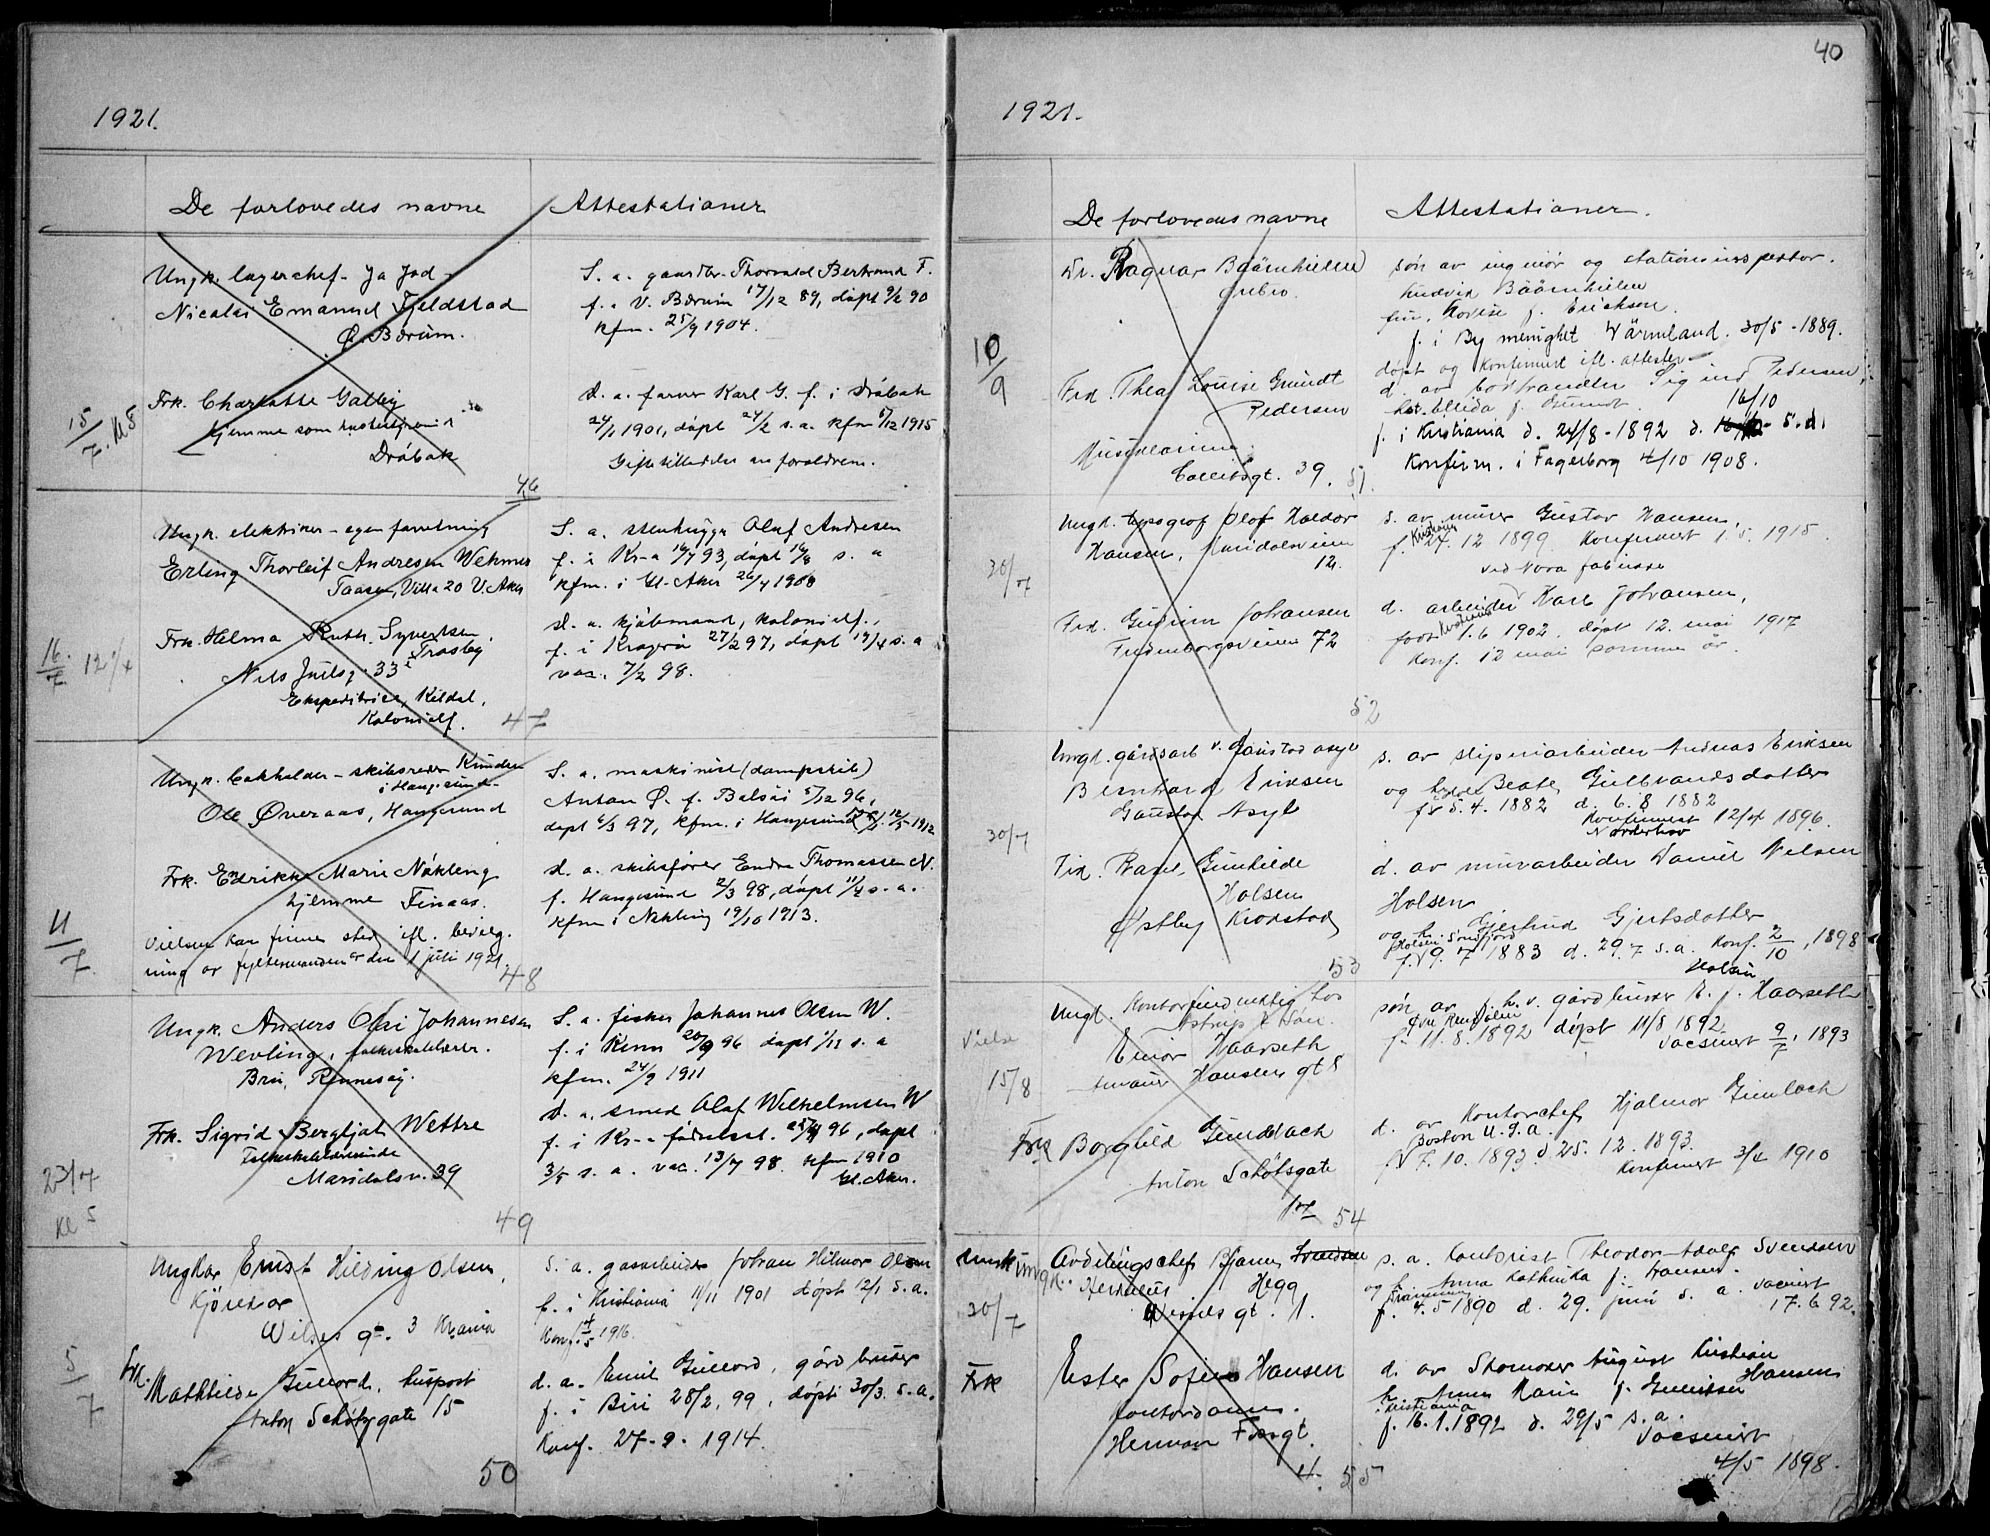 1921.
De forlovedes navne
Attestationer
15/7. kl 5
Ungk. lagerchef
Nicolai Emanuel Fjeldstad
Ø. Bærum.
S. a. gaardbr. Thorvald Bertrand F.
f. i V. Bærum 17/12 89, døpt 9/2 90
kfm. 25/9 1904.
Frk. Charlotte Galby
hjemme som
Drøbak
d. a. farver Karl G. f. i Drøbak
24/1 1901, døpt 24/2 s. a. kfm 5/12 1915
Giftetilladelse av forældrene.
46
16/7. 12
Ungk. elektriker - egen forretning
Erling Thorleif Andresen Wehmer
Taasen, Villa 20 V. Aker
S. a. stenhugger Olaf Andresen
f. i Kr-a 16/7 93, døpt s. a
kfm. i Gl. Aker 26/4 1908
Frk. Helma Ruth Syvertsen
Nils Juelsg. 33
Ekspeditrice, Kildal,
Kolonialf.
d. a. kjøbmand, kolonialf.,
f. i Kragerø 27/2 97, døpt 19/4 s. a
vac. 7/2 98.
47
11/7
Ungk. bokholder - skibsreder Knudsen
i Haugesund
Ole Øveraas, Haugesund
S. a. maskinist (dampskib)
Anton Ø. f. Bolsøi 5/12 96,
døpt 6/3 97, kfm. i Haugesund 12/5 1912
Frk. Endrikke Marie Nøkling
hjemme Finaas.
d. a. skibsfører Endre Thomassen N.
f. Haugesund 2/3 98, døpt 11/4 s. a.
kfm i Nøkling 19/10 1913.
Vielsen kan finne sted ifl. bevilg-
ning av fylkesmanden av 1 juli 1921
48
23/7
kl 5
Ungk. Anders Olai Johannesen
Wevling, folkeskolelærer.
Bru, Rennesøy.
S. a. fisker Johannes Olsen W.
f. i Kinn 20/9 96 døpt 1/11 s. a
kfm. 24/9 1911
Frk. Sigrid Bergljot Wettre
Folkeskolelærerinde
Maridalsv. 39
d. a. smed Olaf Wilhelmsen W
f. i Kr-a fødselsst. 25/4 96, døpt
3/5 s. a. vac. 13/7 98. kfm 1910
Gl. Aker.
49
5/7
Ungkar Ernst Hilding Olsen,
Kjører
Wilses gt. 3 Kr.ania
S. a. gasarbeider Johan Hilmar Olsen
f. i Kristiania 11/11 1901 døpt 12/1 s. a.
Konf. 1916.
Frk.
Mathilde Gullord, huspost
Anton Schøtzgate 15
d. a. Emil Gullord, gårdbruker
f. i Biri 28/2, 99, døpt 30/3. s. a.
Konf. 27-9. 1914.
50
40
1921.
De forlovedes navne
Attestationer.
10/9
Dr. Ragnar Bäärnhielm
Örebro.
søn av ingeniør og stationsinspektør
Ludvig Bäärnhielm
fru, Lovise f. Erickson.
f. i By menighet Wärmland. 30/5 - 1889.
døpt og konfirmert ifl. attester
Frk. Thea Louise Gundt
Pedersen
Colletsgt. 39.
51.
d. av Sigurd Pedersen,
16/10
f. i Kristiania d. 24/8 - 1892 d. s. d.
Konfirm. i Fagerborg 4/10 1908.
30/7
Ungk. typograf Olof Haldor
Hansen, Maridalsveien
12.
s. av murer Gustav Hansen,
Kristiania
f. 27. 12 1899. Konfirmert 1. 5. 1915.
Frk. Gudrun Johansen
Fredensborgsveien 72
d. arbeider Karl Johansen,
Kristiania
født 1. 6 1902. døpt 12. mai 1917
Konf. 12 mai samme år.
52
30/7
Ungk. gårdsarb. v. Gaustad asyl
Bernhard Eriksen
Gaustad Asyl
s. av sliperiarbeider Andreas Eriksen
og hustru Beate Gulbrandsdatter
f. 5. 4. 1882 d. 6. 8 1882
Konfirmert 12/4 1896.
Norderhov
Frk. Ragna Gunhilde
Holsen
Østby Krodstad
d. av murarbeider Daniel Nilsen
Holsen
og h. Gjertrud Gjertsdatter
Holsen i Søndfjord
f. 9. 7 1883 d. 29. 7 s. a. Konf. 2/10, 1898
Holsen
53
Vielse
15/8
Ungk. Kontorfuldmektig hos
Astrup & Søn.
Einar Haarseth
Amaier Hansens gt 8
søn av f. h. v. gårdbruker E. J. Haarseth
Øvre Rendalen
f. 11. 8. 1892 døpt 11/8 1892
vacsinert 9/7, 1893
Frk Borghild Gundlach
Anton Schøtsgate
54
d. av kontorchef Hjalmar Gundlach
Boston U. S. a.
f. 7. 10. 1893 d 25. 12. 1893.
Konfirmert 3/4 1910
ungk.
30/7
Avdelingschef Bjarne Svendsen
Hegg
Wessels gt. 1.
s. a. Kontorist Theodor Adolf Svendsen
og h. Anna Kathrika f. Hansen.
Drammen
f. 4. 5 1890 d. 29. juni s. a. vacinert
17. 6 92.
Frk
Ester Sofie Hansen
kontordame.
Herman Fossgt.
4. 55
d. av Skomaker August Kristian
Hansen
h. Anna Marie f. Gulliksen
Kristiania
f. 16. 1. 1892 d. 29/5 s. a.
Vacsinert
4/5 1898.